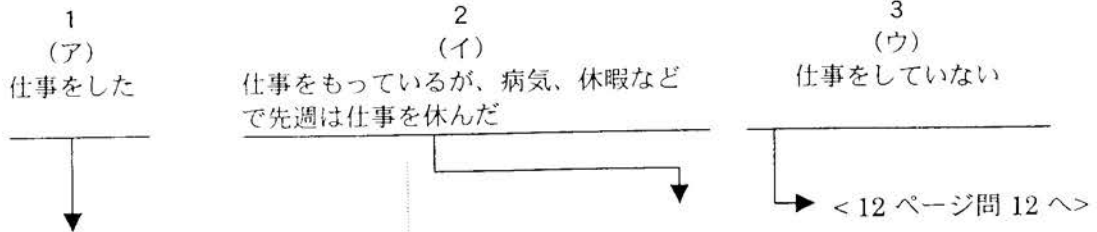 1
(ア)
仕事をした
2
(イ)
仕事をもっているが、病気、休暇など
で先週は仕事を休んだ
3
(ウ)
仕事をしていない
<12 ページ問 12 へ>